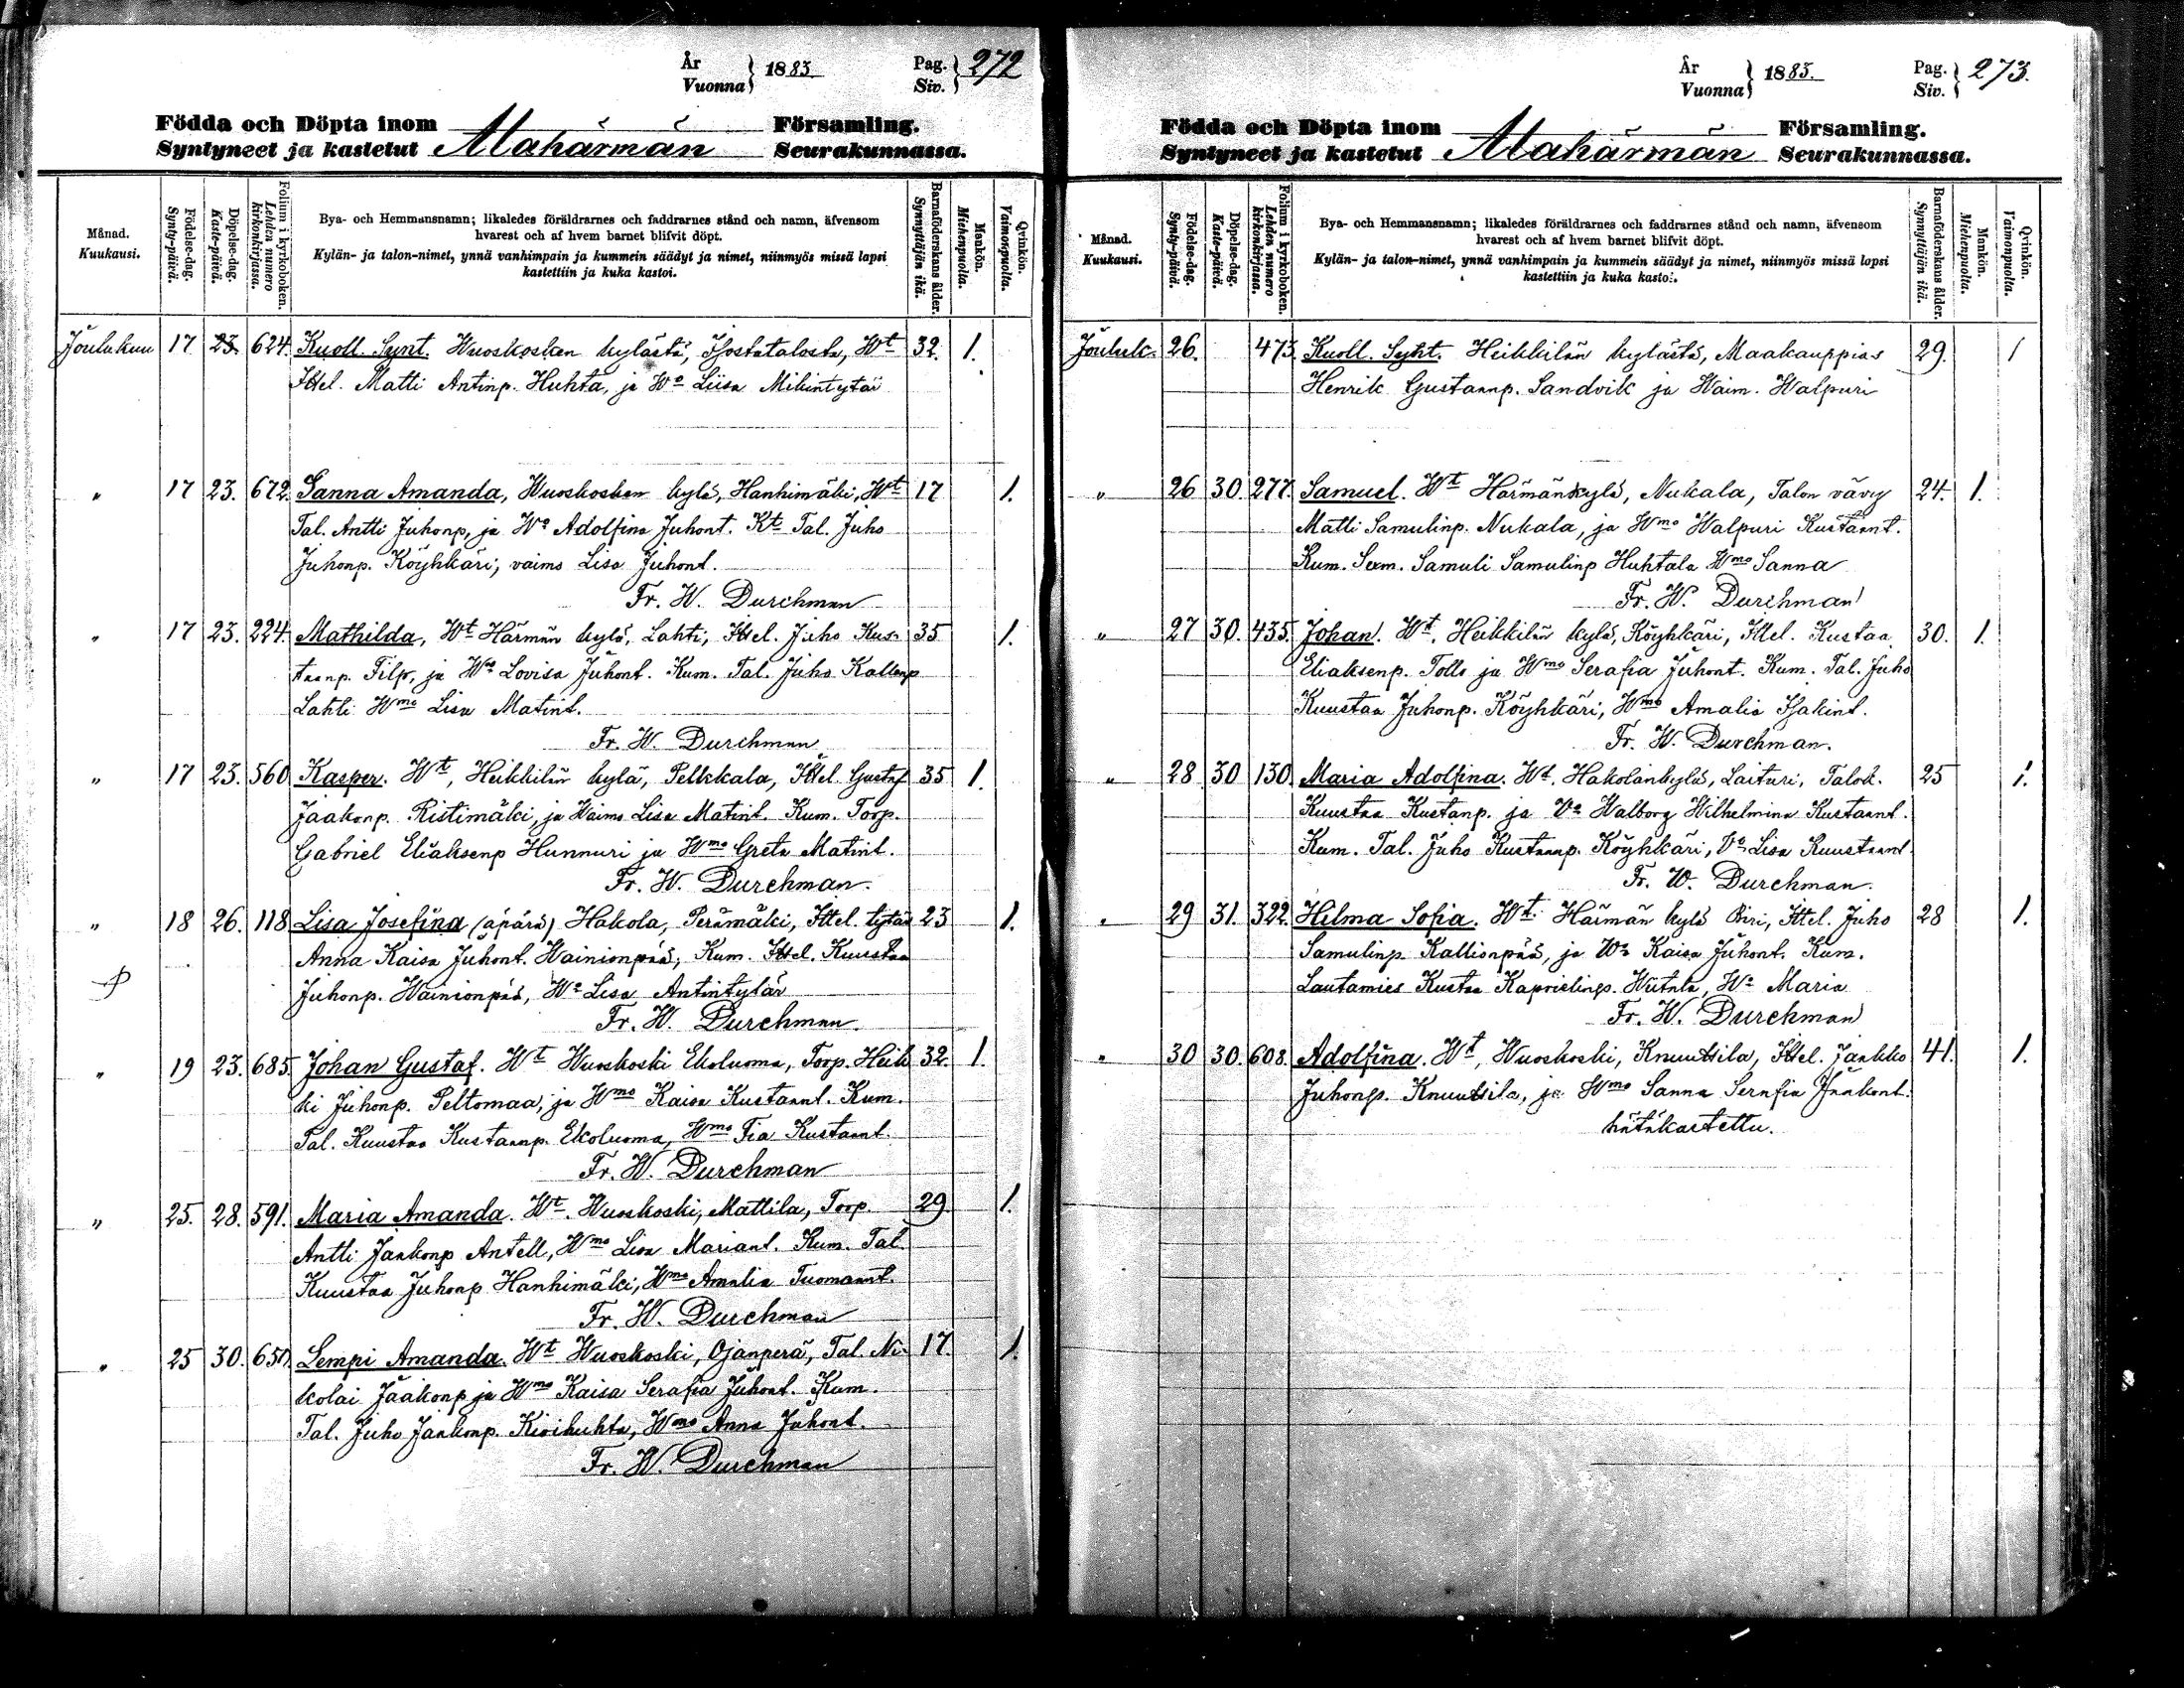 År
Vuonna } 1883.
Pag.
Siv. } 272
Födda och Döpta inom Församling.
Syntyneet ja kastetut Alahärmän Seurakunnassa.
Månad.
Kuukausi.
Födelse-dag.
Synty-päivä.
Döpelse-dag.
Kaste-päivä.
Folium i kyrkoboken.
Lehden numero kirkonkirjassa.
Bya- och Hemmansnamn; likaledes föräldrarnes och faddrarnes stånd och namn, äfvensom
hvarest och af hvem barnet blifvit döpt.
Kylän- ja talon-nimet, ynnä vanhimpain ja kummein säädyt ja nimet, niinmyös missä lapsi
kastettiin ja kuka kastoi.
Barnaföderskans ålder.
Synnyttäjän ikä.
Mankön.
Miehenpuolia.
Qvinkön.
Vaimonpuolia.
Joulukuu 17 23 624. Kuoll. Synt. Wuoskosken kylästä, Isostatalosta, Wt 32. 1.
Ittel. Matti Antinp. Huhta, ja Wo Liisa Mikintytär
" 17 23. 672. Sanna Amanda, Wuoskosken kylä, Hanhimäki, Wt 17 1.
Tal. Antti Juhonp, ja Wo Adolfina Juhont. Kt Tal. Juho
Juhonp. Köyhkäri, vaimo Lisa Juhont.
Fr. W. Durchman
" 17 23. 224. Mathilda, Wt Härmän kylä, Lahti, Ittel. Juho Kus- 35 1.
taanp. Filp, ja Wo Lovisa Juhont. Kum. Tal. Juho Kallenp
Lahti Wmo Lisa Matint.
Fr. W. Durchman
" 17 23. 560 Kasper. Wt, Heikkilän kylä, Pelkkala, Ittel. Gustaf 35 1.
Jaakonp. Ristimäki, ja Waimo Lisa Matint. Kum. Torp.
Gabriel Eliaksenp Hunnuri ja Wmo Greta Matint.
Fr. W. Durchman.
" 18 26. 118 Lisa Josefina (äpärä) Hakola, Perämäki, Ittel. tytär 23 1.
Anna Kaisa Juhont. Wainionpää, Kum. Ittel. Kuustaa
Juhonp. Wainionpää, Wo Lisa Antintytär
Fr. W. Durchman.
" 19 23. 685. Johan Gustaf. Wt Wuoskoski Ekoluoma, Torp. Heik 32. 1.
ki Juhonp. Peltomaa, ja Wmo Kaisa Kustaant. Kum.
Tal. Kuustaa Kustaanp. Ekoluoma, Wmo Fia Kustaant.
Fr. W. Durchman
" 25. 28. 591. Maria Amanda. Wt. Wuoskoski, Mattila, Torp. 29 1.
Antti Jaakonp Antell, Wmo Lisa Mariant. Kum. Tal.
Kuustaa Juhonp Hanhimäki, Wmo Amalia Tuomaant.
Fr. W. Durchman
" 25 30. Lempi Amanda. Wt Wuoskoski, Ojanperä, Tal. Ni- 17. 1.
kolai Jaakonp ja Wmo Kaisa Serafia Juhont. Kum.
Tal. Juho Jaakonp. Kivihuhta, Wmo Anna Juhont.
Fr. W. Durchman
År
Vuonna } 1883.
Pag.
Siv. } 273.
Födda och Döpta inom Församling.
Syntyneet ja kastetut Alahärmän Seurakunnassa.
Månad.
Kuukausi.
Födelse-dag.
Synty-päivä.
Döpelse-dag.
Kaste-päivä.
Folium i kyrkoboken.
Lehden numero kirkonkirjassa.
Bya- och Hemmansnamn; likaledes föräldrarnes och faddrarnes stånd och namn, äfvensom
hvarest och af hvem barnet blifvit döpt.
Kylän- ja talon-nimet, ynnä vanhimpain ja kummein säädyt ja nimet, niinmyös missä lapsi
kastettiin ja kuka kastoi.
Barnaföderskans ålder.
Synnyttäjän ikä.
Mankön.
Miehenpuolia.
Qvinkön.
Vaimonpuolia.
Jouluk. 26. 473 Kuoll. Synt. Heikkilän kylästä, Maakauppias 29. 1
Henrik Gustaanp. Sandvik ja Waim. Walpuri
" 26 30. 277. Samuel. Wt Härmänkylä, Nukala, Talon vävy 24. 1.
Matti Samulinp. Nukala, ja Wmo Walpuri Kustaant.
Kum. Sexm. Samuli Samulinp Huhtala Wmo Sanna
Fr. W. Durchman
" 27 30. 435. Johan. Wt. Heikkilän kylä, Köyhkäri, Ittel. Kustaa 30. 1.
Eliaksenp. Tollo ja Wmo Serafia Juhont. Kum. Tal. Juho
Kuustaa Juhonp. Köyhkäri, Wmo Amalia Isakint.
Fr. W. Durchman.
" 28 30 130. Maria Adolfina. Wt. Hakolankylä, Laituri, Talok. 25 1.
Kuustaa Kustanp. ja Vo Walborg Wilhelmina Kustaant.
Kum. Tal. Juho Kustaanp. Köyhkäri, Vo Lisa Kuustaant.
Fr. W. Durchman.
" 29 31. 322. Hilma Sofia. Wt. Härmän kylä Biri, Ittel. Juho 28 1.
Samulinp Kallionpää, ja Wo Kaisa Juhont. Kum.
Lautamies Kustaa Kaprielinp. Wiitala, Wo Maria
Fr. W. Durchman
" 30 30. 608. Adolfina. Wt, Wuoskoski, Knuutila, Ittel. Jaakko 41. 1.
Juhonp. Knuutila, ja Wmo Sanna Serafia Jaakont.
hätäkastettu.